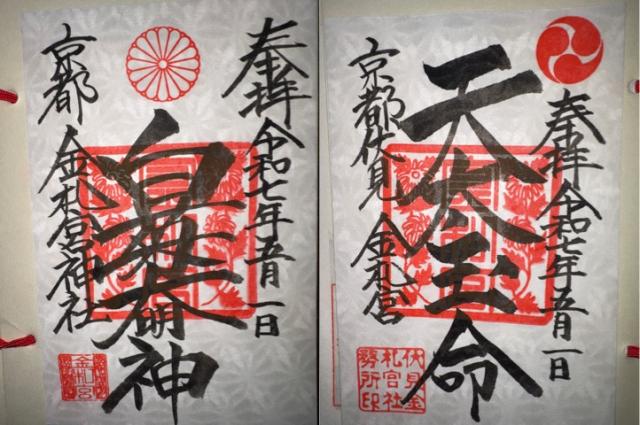 奉拝 令和七年五月一日
白神
京都 金札宮神社
金札宮
奉拝 令和七年五月一日
天太玉命
京都伏見 金札宮
伏見金
札宮社
務所印